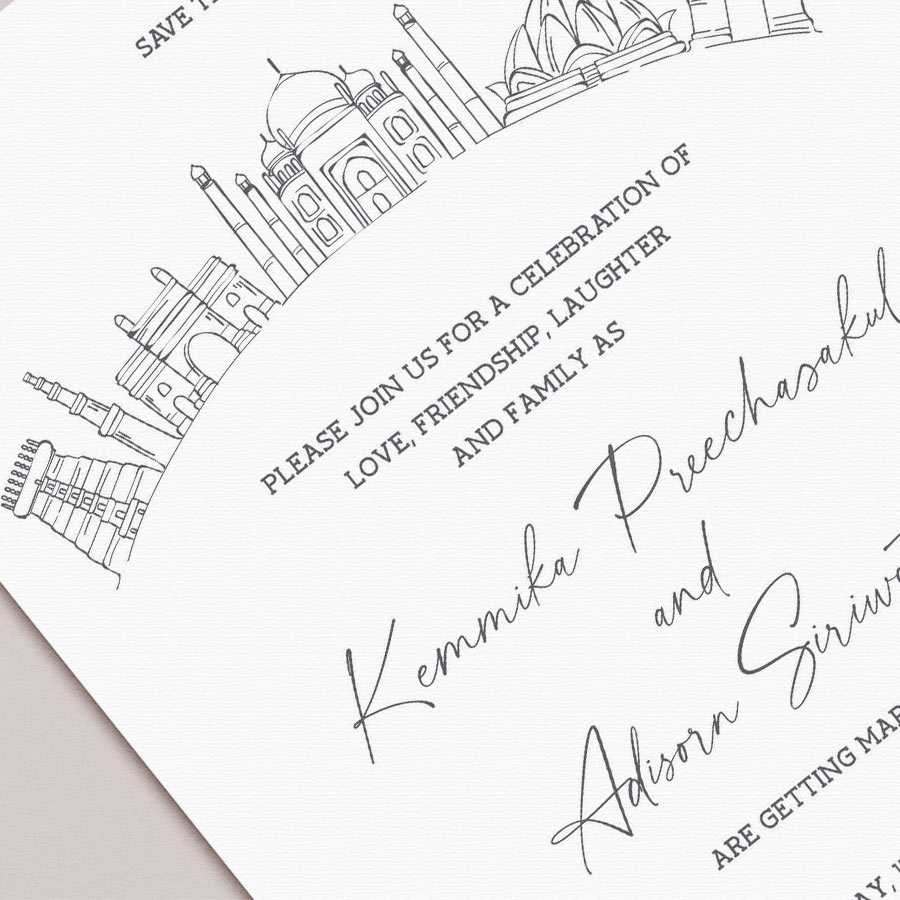 SAVE
PLEASE JOIN US FOR A CELEBRATION OF
LOVE, FRIENDSHIP, LAUGHTER
AND FAMILY AS
Kemmika Preechasakul
and
Adisorn
ARE GETTING